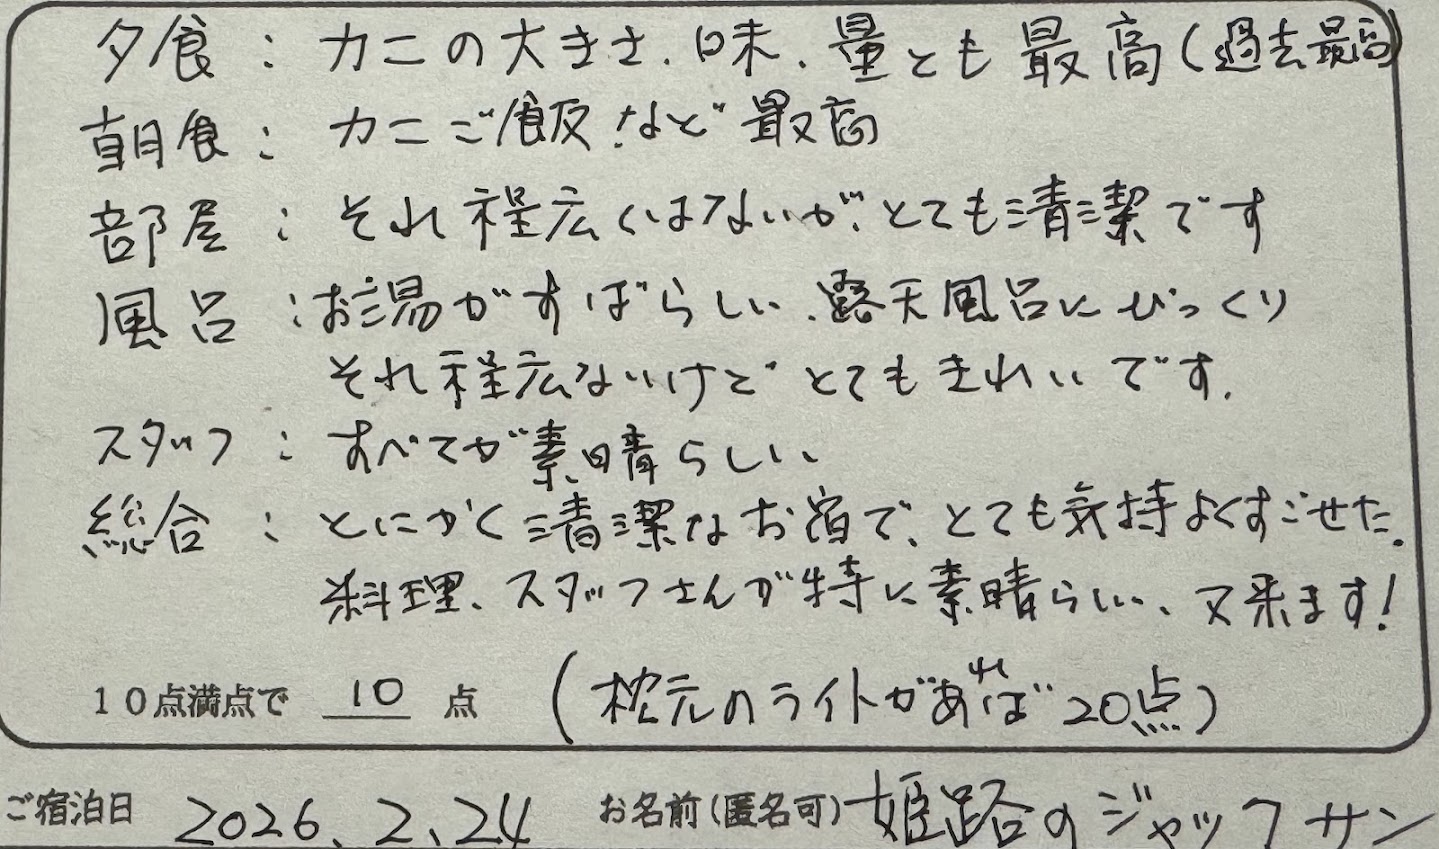 夕食：カニの大きさ、味、量とも最高（過去最高）
朝食：カニご飯など最高
部屋：それ程広くはないが、とても清潔です
風呂：お湯がすばらしい、露天風呂にびっくり
それ程広ないけどとてもきれいです。
スタッフ：すべてが素晴らしい、
総合：とにかく清潔なお宿で、とても気持よくすごせた。
料理、スタッフさんが特に素晴らしい、又来ます！
10点満点で 10 点 （枕元のライトがあれば20点）
ご宿泊日 2026、2、24 お名前（匿名可） 姫路のジャックサン